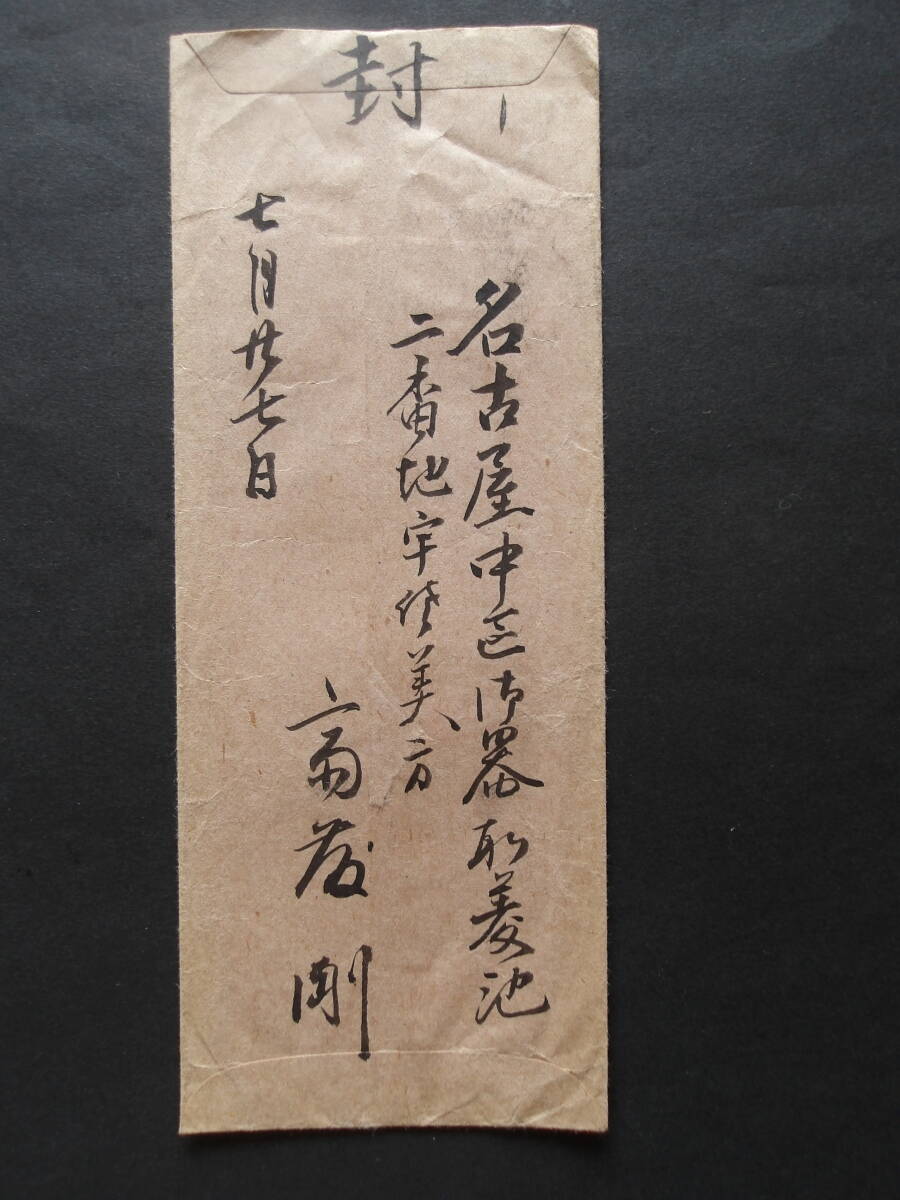 封
名古屋中区御器所菱池
二番地宇佐美方
斎藤 剛
七月廿七日